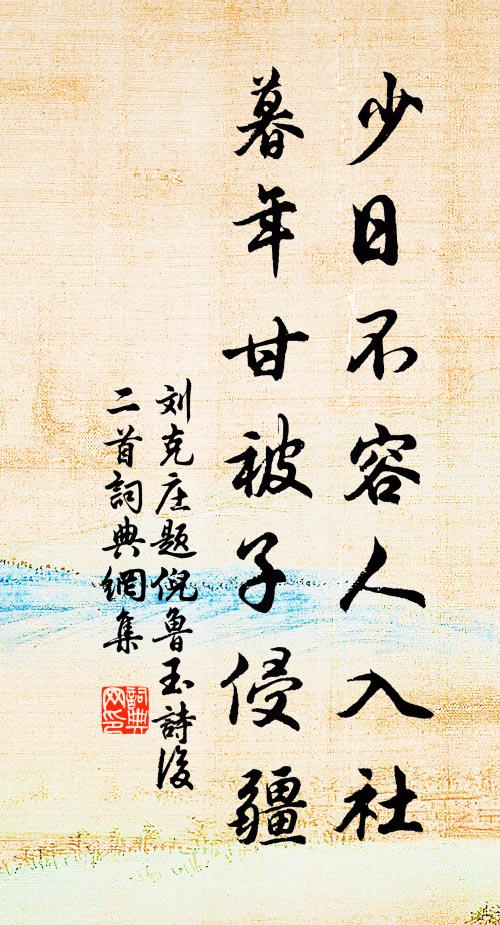 少日不容人入社
暮年甘被子侵疆
刘克庄题倪鲁玉詩後
二首詞典網集
詞典
网印